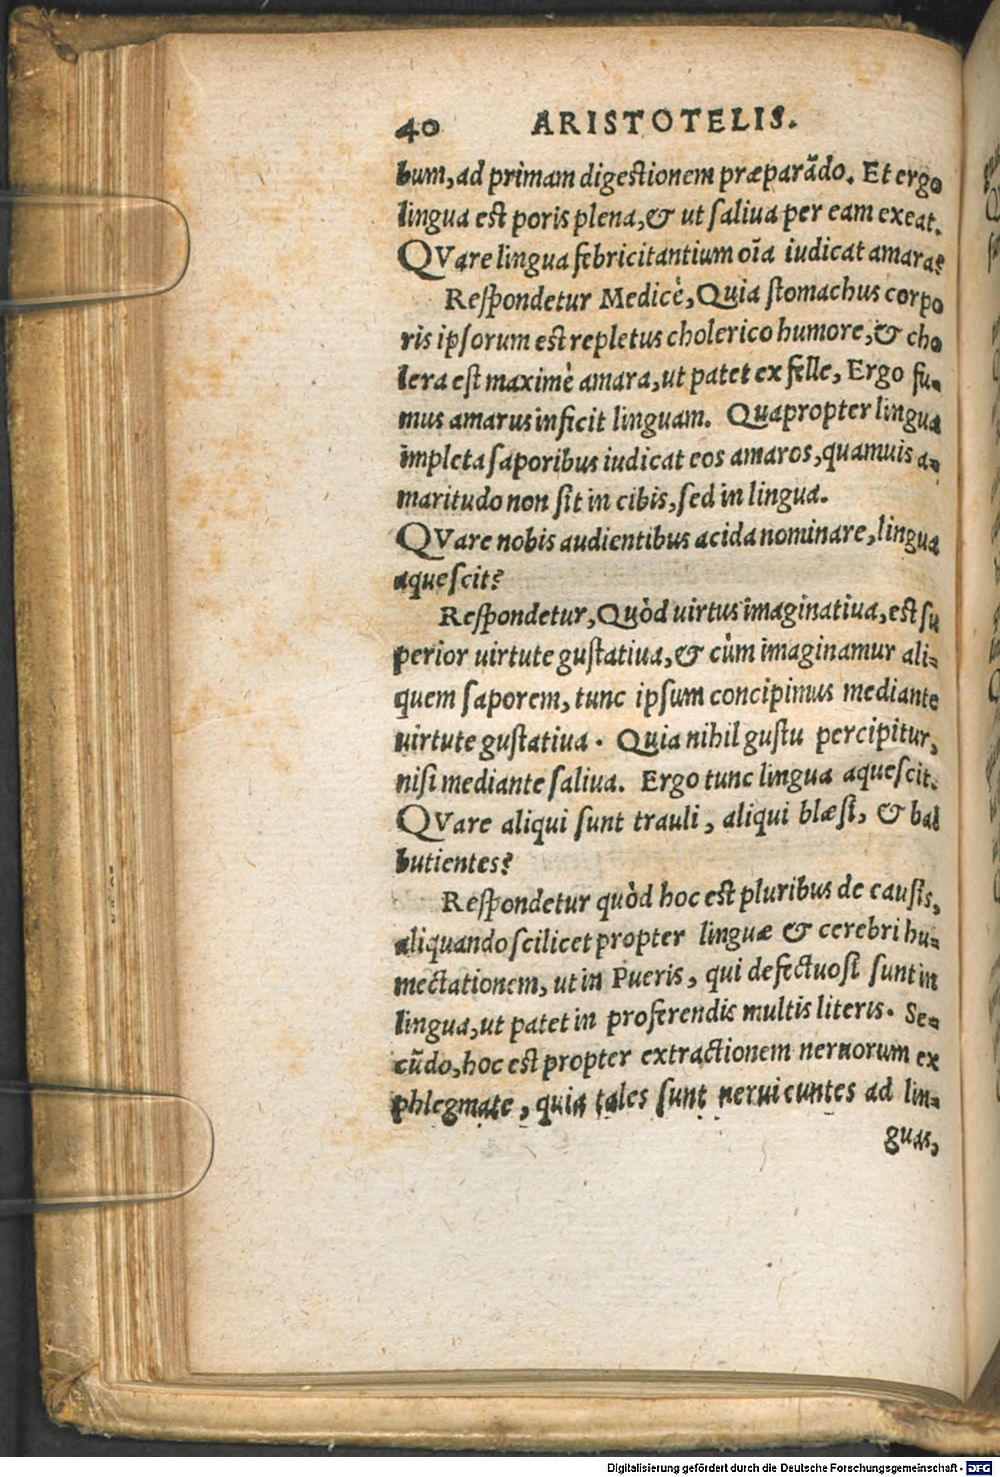 40 ARISTOTELIS.
bum, ad primam digestionem præparādo. Et ergo
lingua est poris plena, & ut saliua per eam exeat.
QVare lingua febricitantium oīa iudicat amara?
Respondetur Medicè, Quia stomachus corpo
ris ipsorum est repletus cholerico humore, & cho
lera est maximè amara, ut patet ex felle, Ergo fu-
mus amarus inficit linguam. Quapropter lingua
impleta saporibus iudicat eos amaros, quamuis a-
maritudo non sit in cibis, sed in lingua.
QVare nobis audientibus acida nominare, lingua
aquescit?
Respondetur, Quòd uirtus imaginatiua, est su
perior uirtute gustatiua, & cùm imaginamur ali-
quem saporem, tunc ipsum concipimus mediante
uirtute gustatiua. Quia nihil gustu percipitur,
nisi mediante saliua. Ergo tunc lingua aquescit.
QVare aliqui sunt trauli, aliqui blæsi, & bal
butientes?
Respondetur quòd hoc est pluribus de causis,
aliquando scilicet propter linguæ & cerebri hu-
mectationem, ut in Pueris, qui defectuosi sunt in
lingua, ut patet in proferendis multis literis. Se-
cūdo, hoc est propter extractionem neruorum ex
phlegmate, quia tales sunt nerui euntes ad lin-
guas,
Digitalisierung gefördert durch die Deutsche Forschungsgemeinschaft - DFG